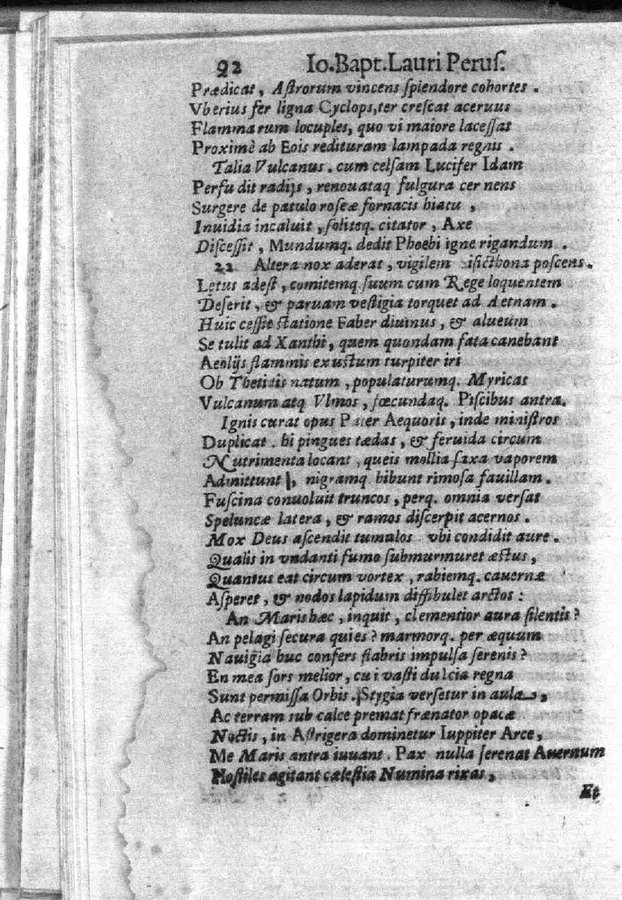 92 Io.Bapt.Lauri Perus.
Prædicat, Astrorum vincens splendore cohortes.
Vberius fer ligna Cyclops,ter crescat aceruus
Flammarum locuples, quo vi maiore lacessat
Proximè ab Eois redituram lampada regnis.
Talia Vulcanus. cum celsam Lucifer Idam
Perfudit radijs, renouataq fulgura cernens
Surgere de patulo roseæ fornacis hiatu,
Inuidia incaluit, soliteq. citator, Axe
Discessit, Mundumq. dedit Phoebi igne rigandum.
22 Altera nox aderat, vigilem poscens.
Letus adest, comitemq. suum cum Rege loquentem
Deserit, & paruam vestigia torquet ad Aetnam.
Huic cessit statione Faber diuinus, & alueum
Se tulit ad Xanthi, quem quondam fata canebant
Aeolijs flammis exustum turpiter iri
Ob Thetidis natum, populaturumq. Myricas
Vulcanum atq Vlmos, fœcundaq. Piscibus antra.
Ignis curat opus Pater Aequoris, inde ministros
Duplicat. hi pingues tædas, & feruida circum
Nutrimenta locant, queis mollia saxa vaporem
Admittunt, nigramq bibunt rimosa fauillam.
Fuscina conuoluit truncos, perq. omnia versat
Speluncæ latera, & ramos discerpit acernos.
Mox Deus ascendit tumulos vbi condidit aure.
Qualis in vndanti fumo submurmuret æstus,
Quantus eat circum vortex, rabiemq. cauernæ
Asperet, & nodos lapidum diffibulet arctos:
An Maris hæc, inquit, clementior aura silentis?
An pelagi secura quies? marmorq. per æquum
Nauigia huc confers flabris impulsa serenis?
En mea sors melior, cui vasti dulcia regna
Sunt permissa Orbis. Stygia versetur in aula,
Ac terram sub calce premat frænator opacæ
Noctis, in Astrigera dominetur Iuppiter Arce,
Me Maris antra iuuant. Pax nulla serenat Auernum
Hostiles agitant cælestia Numina rixas,
Et